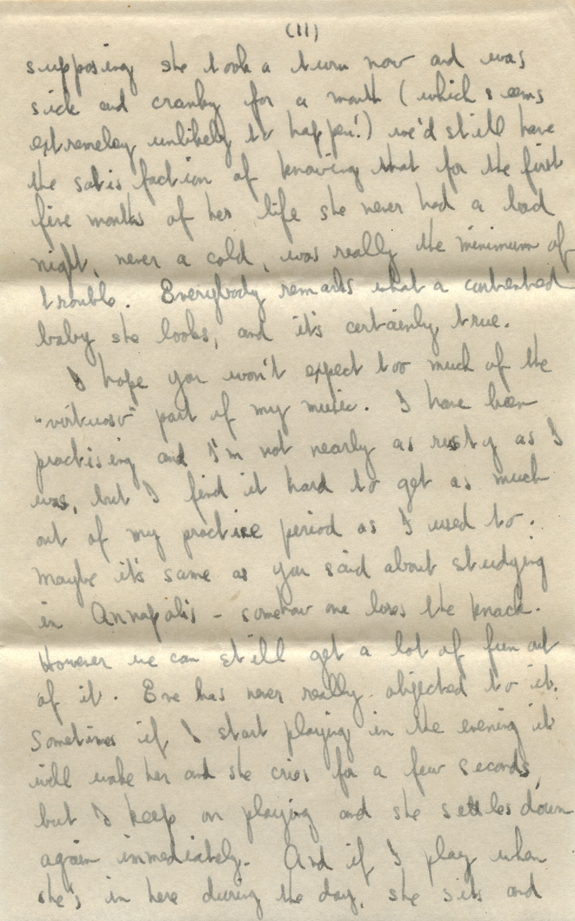 (11)
supposing she took a turn now and was
sick and cranky for a month (which seems
extremely unlikely to happen!) we'd still have
the satisfaction of knowing that for the first
five months of her life she never had a bad
night, never a cold, was really the minimum of
trouble. Everybody remarks what a contented
baby she looks, and it's certainly true.
I hope you won't expect too much of the
"virtuoso" part of my music. I have been
practising and I'm not nearly as rusty as I
was, but I find it hard to get as much
out of my practise period as I used to.
Maybe it's same as you said about studying
in Annapolis - somehow one loses the knack.
However we can still get a lot of fun out
of it. Eve has never really objected to it.
Sometimes if I start playing in the evening it
will wake her and she cries for a few seconds,
but I keep on playing and she settles down
again immediately. And if I play when
she's in here during the day, she sits and